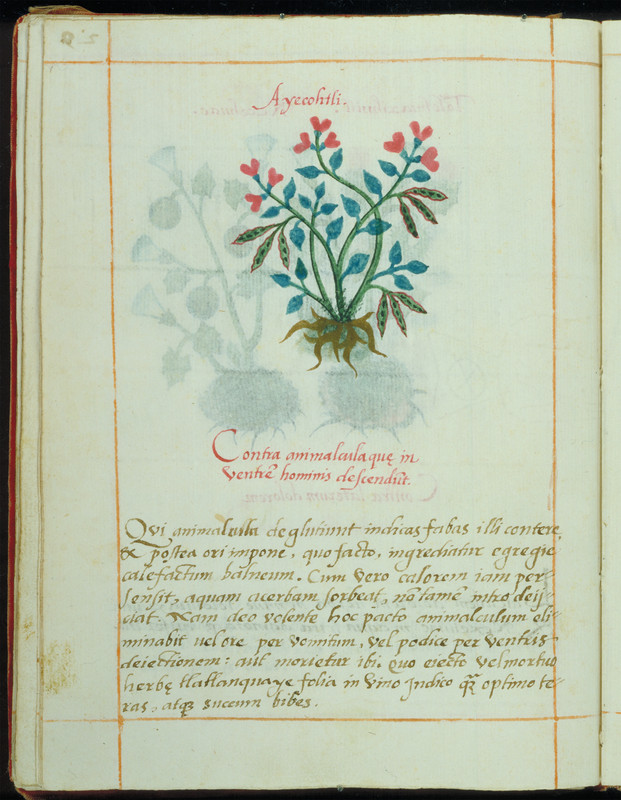 Ayecohtli.
Contra animalcula quę in
ventrē hominis descendūt.
Qui animalcula deglutiunt indicas fabas illi contere
& postea ori impone, quo facto, ingrediatur egregie
calefactum balneum. Cum vero calorem iam per-
sensit, aquam acerbam sorbeat, nō tamē intro deij-
ciat. Nam deo volente hoc pacto animalculum eli-
minabit vel ore per vomitum, vel podice per ventris
deiectionem: aut morietur ibi, quo eiecto vel mortuo
herbę tlatlanquaye folia in vino Indico optimo te-
ras, atq; succum bibes.